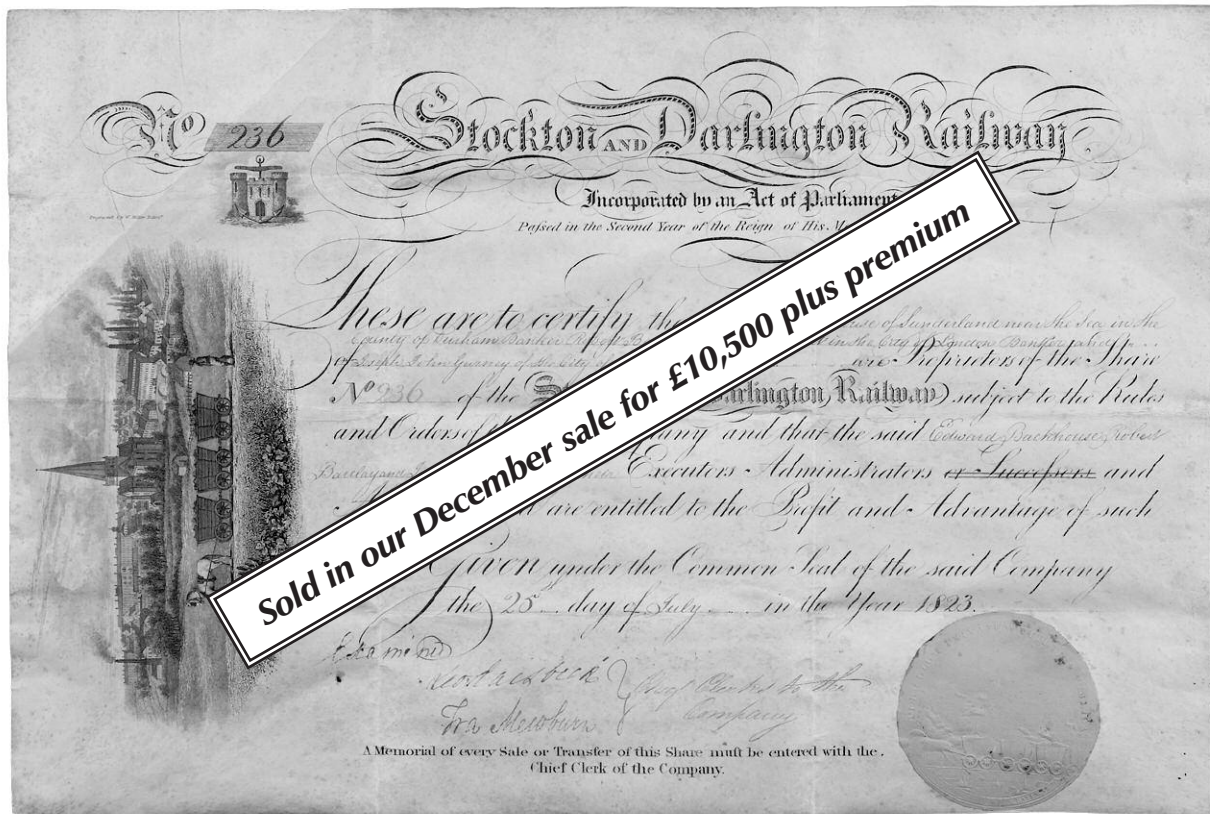 No 236
Stockton AND Darlington Railway
Incorporated by an Act of Parliament
Paſsed in the Second Year of the Reign of His M
These are to certify th of Sunderland near the Sea in the
County of Durham Banker Robert B in the City of London Banker
of Joseph John Gurney of the City of are Proprietors of the Share
No 236 of the St Darlington Railway subject to the Rules
and Orders of th pany and that the said Edward Backhouse Robert
Barclay and Executors Administrators or Succeſsors and
are entitled to the Profit and Advantage of such
Given under the Common Seal of the said Company
the 25 day of July in the Year 1823.
Examined
Fra Mewburn Clerks to the
Company
A Memorial of every Sale or Transfer of this Share muſt be entered with the
Chief Clerk of the Company.
Sold in our December sale for £10,500 plus premium